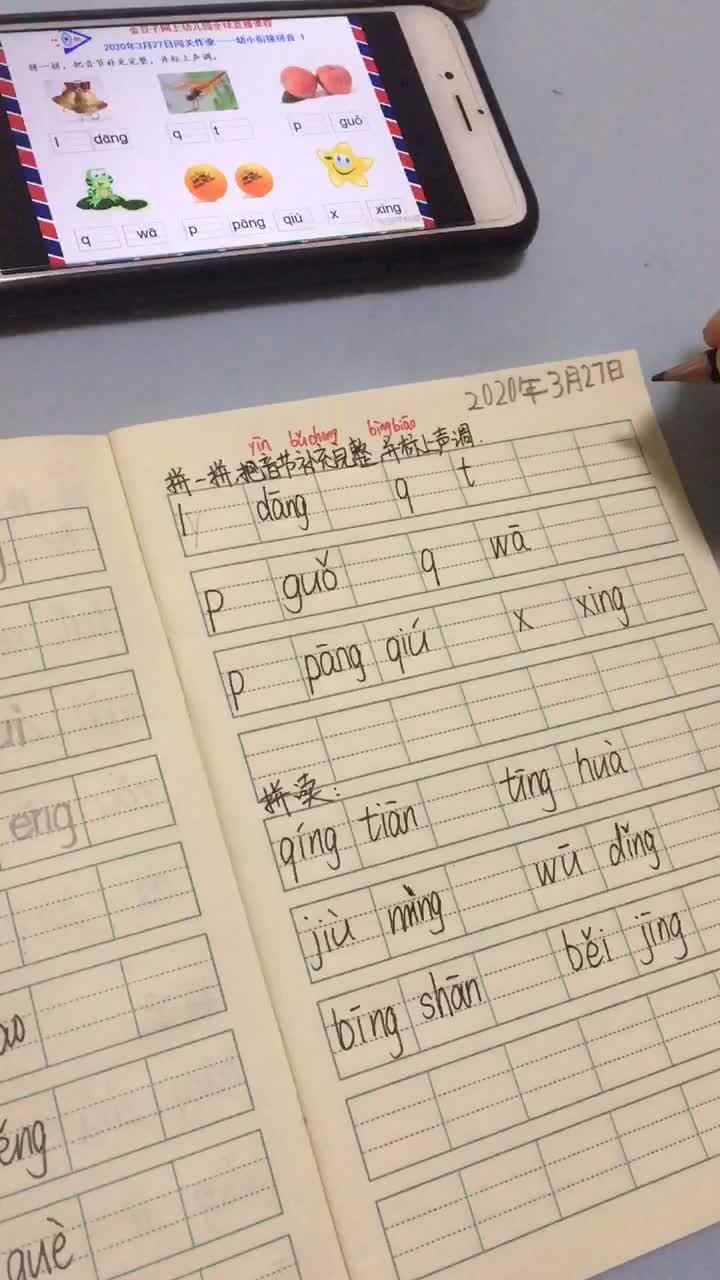 金豆子网上幼儿园全球直播课程
2020年3月27日闯关作业——幼小衔接拼音 1
拼一拼,把音节补充完整,并标上声调。
l dāng q t p guǒ
q wā p pāng qiú x xing
2020年3月27日
yīn bǔ chōng bìng biāo
拼一拼,把音节补充完整,并标上声调.
l dāng q t
p guǒ q wā
p pāng qiú x xing
拼读:
qíng tiān tīng huà
jiù mìng wū dǐng
bīng shān běi jīng
ui
eng
ao
éng
què